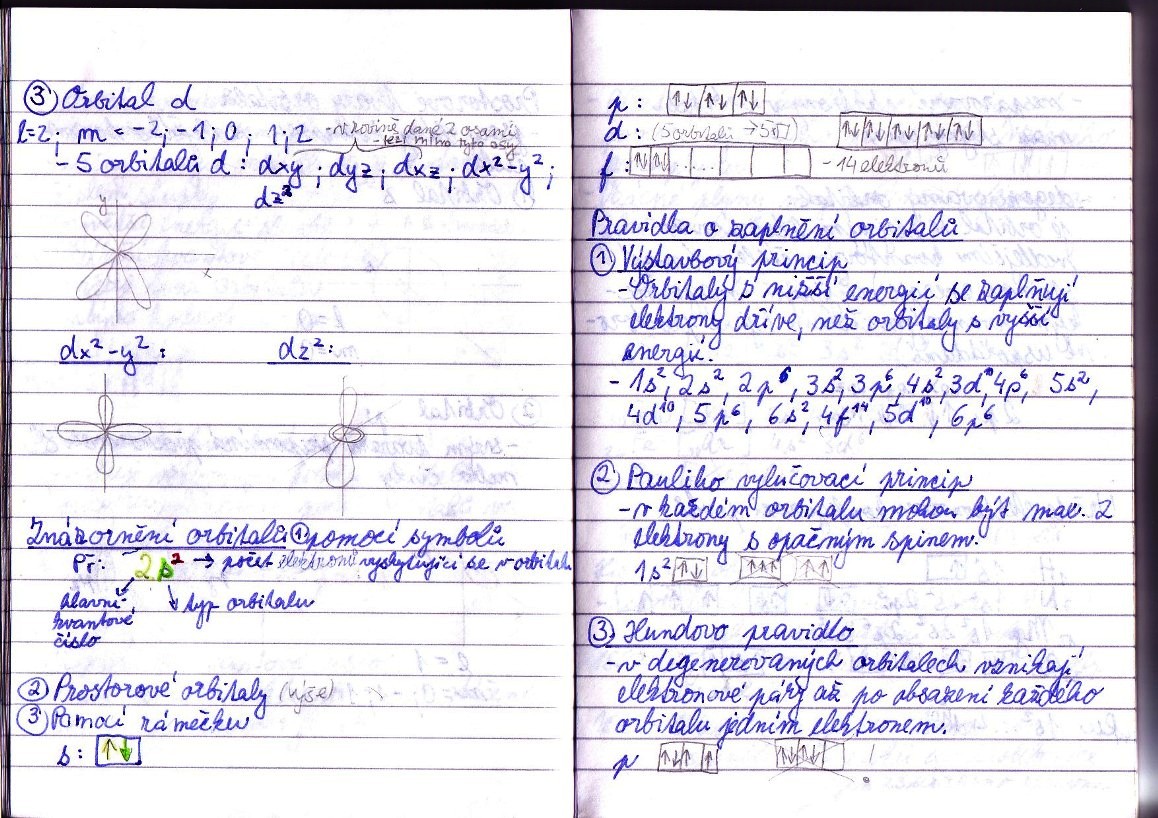 ③ Orbital d
l=2; m = -2; -1; 0; 1; 2 - v rovině dané 2 osami
- leží mimo tyto osy
- 5 orbitalů d: dxy; dyz; dxz; dx²-y²;
dz²
y
x
dx²-y²: dz²:
Znázornění orbitalů ① pomocí symbolů
Př: 2s² → počet elektronů vyskytující se v orbitalu
hlavní kvantové číslo
typ orbitalu
② Prostorové orbitaly (výše)
③ Pomocí rámečku
s: ↑↓
p: ↑↓ ↑↓ ↑↓
d: (5 orbitalů → 5□) ↑↓ ↑↓ ↑↓ ↑↓ ↑↓
f: ↑↓ ↑↓ ... - 14 elektronů
Pravidla o zaplnění orbitalů
① Výstavbový princip
- Orbitaly s nižší energií se zaplňují
elektrony dříve, než orbitaly s vyšší
energií.
- 1s², 2s², 2p⁶, 3s², 3p⁶, 4s², 3d¹⁰, 4p⁶, 5s²,
4d¹⁰, 5p⁶, 6s², 4f¹⁴, 5d¹⁰, 6p⁶
② Pauliho vylučovací princip
- v každém orbitalu mohou být max. 2
elektrony s opačným spinem.
1s² ↑↓ ↑↑↑ ↑↑
③ Hundovo pravidlo
- v degenerovaných orbitalech vznikají
elektronové páry až po obsazení každého
orbitalu jedním elektronem.
p ↑↓ ↑ ↑ ↑↓ ↑↓